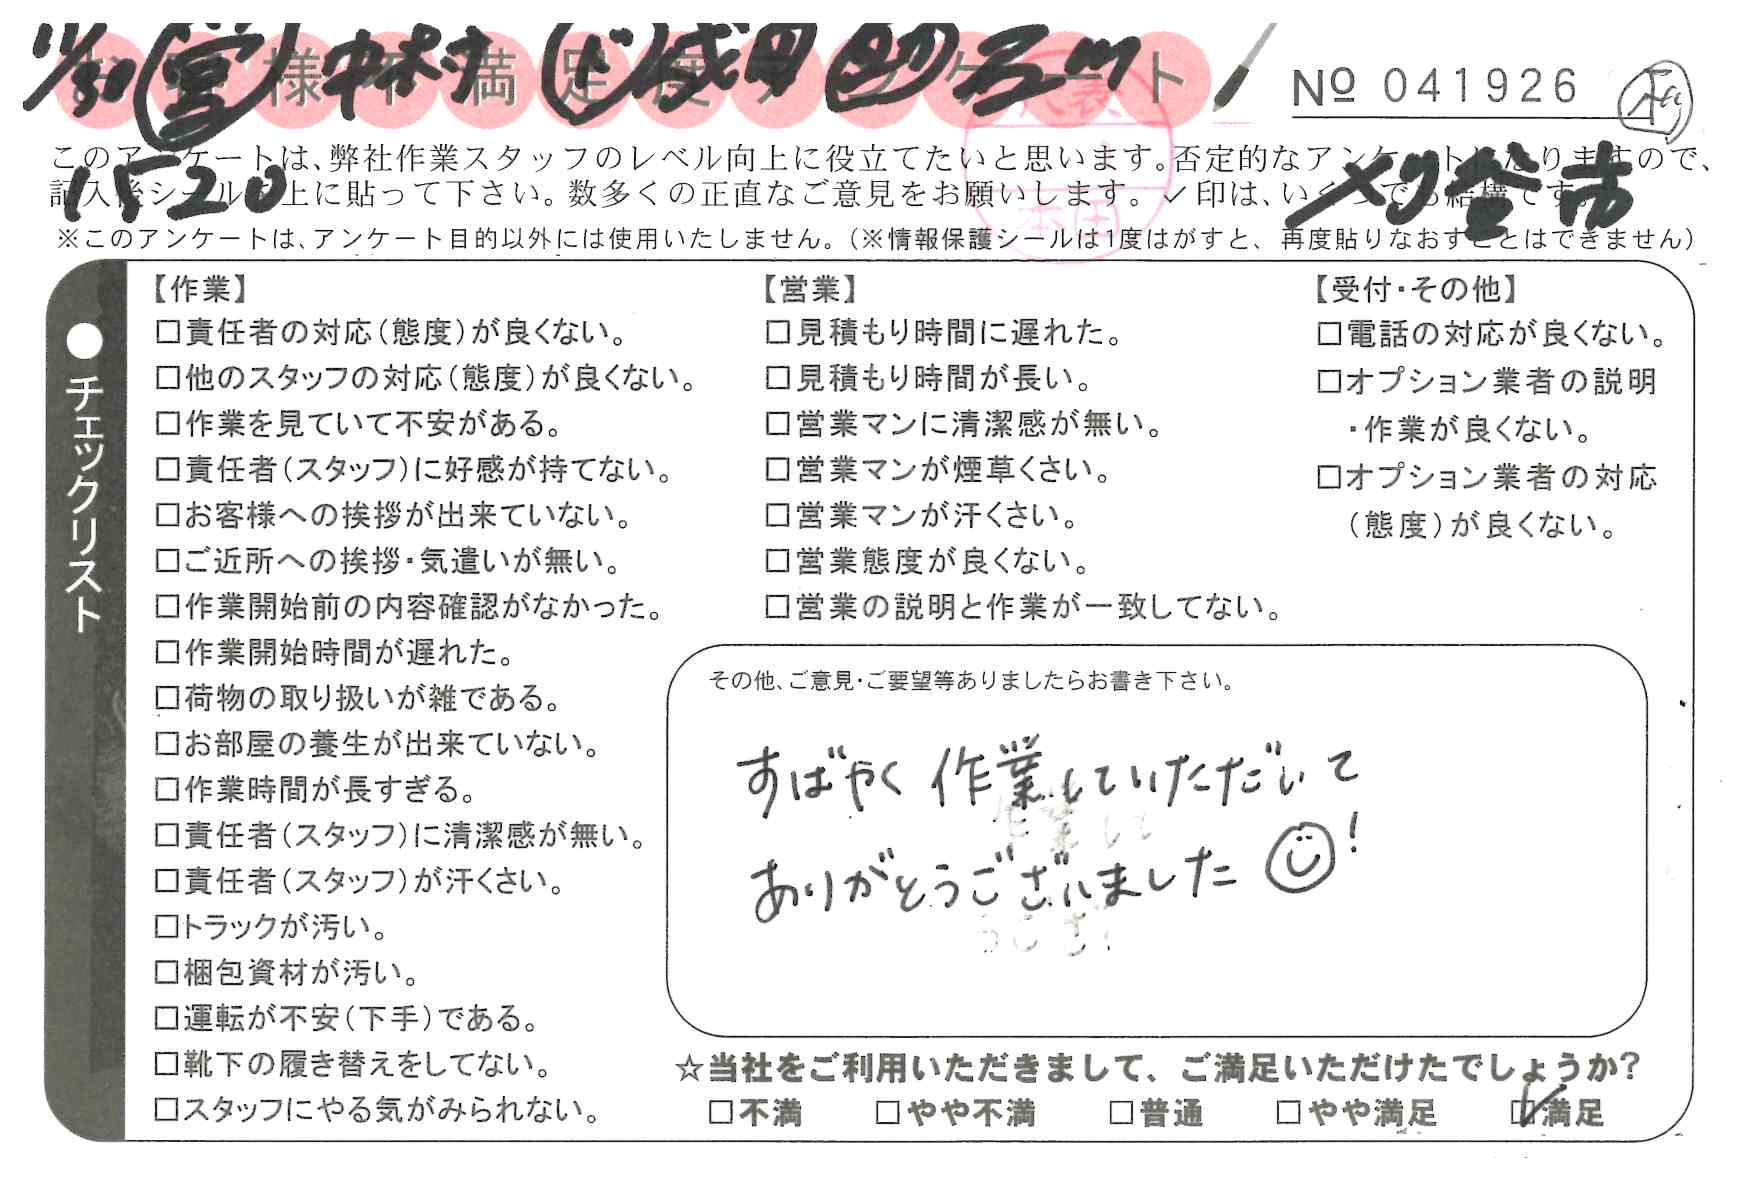 11/30 (営)中村 (ド)成田 (助)石川
お客様不満足度アンケート
№ 041926
このアンケートは、弊社作業スタッフのレベル向上に役立てたいと思います。否定的なアンケートになりますので、
記入後シールを上に貼って下さい。数多くの正直なご意見をお願いします。✓印は、いくつでも結構です。
1520
刈谷市
※このアンケートは、アンケート目的以外には使用いたしません。(※情報保護シールは1度はがすと、再度貼りなおすことはできません)
●チェックリスト
【作業】
□責任者の対応(態度)が良くない。
□他のスタッフの対応(態度)が良くない。
□作業を見ていて不安がある。
□責任者(スタッフ)に好感が持てない。
□お客様への挨拶が出来ていない。
□ご近所への挨拶・気遣いが無い。
□作業開始前の内容確認がなかった。
□作業開始時間が遅れた。
□荷物の取り扱いが雑である。
□お部屋の養生が出来ていない。
□作業時間が長すぎる。
□責任者(スタッフ)に清潔感が無い。
□責任者(スタッフ)が汗くさい。
□トラックが汚い。
□梱包資材が汚い。
□運転が不安(下手)である。
□靴下の履き替えをしてない。
□スタッフにやる気がみられない。
【営業】
□見積もり時間に遅れた。
□見積もり時間が長い。
□営業マンに清潔感が無い。
□営業マンが煙草くさい。
□営業マンが汗くさい。
□営業態度が良くない。
□営業の説明と作業が一致してない。
【受付・その他】
□電話の対応が良くない。
□オプション業者の説明
・作業が良くない。
□オプション業者の対応
(態度)が良くない。
その他、ご意見・ご要望等ありましたらお書き下さい。
すばやく作業していただいて
ありがとうございました☺!
☆当社をご利用いただきまして、ご満足いただけたでしょうか?
□不満 □やや不満 □普通 □やや満足 ☑満足